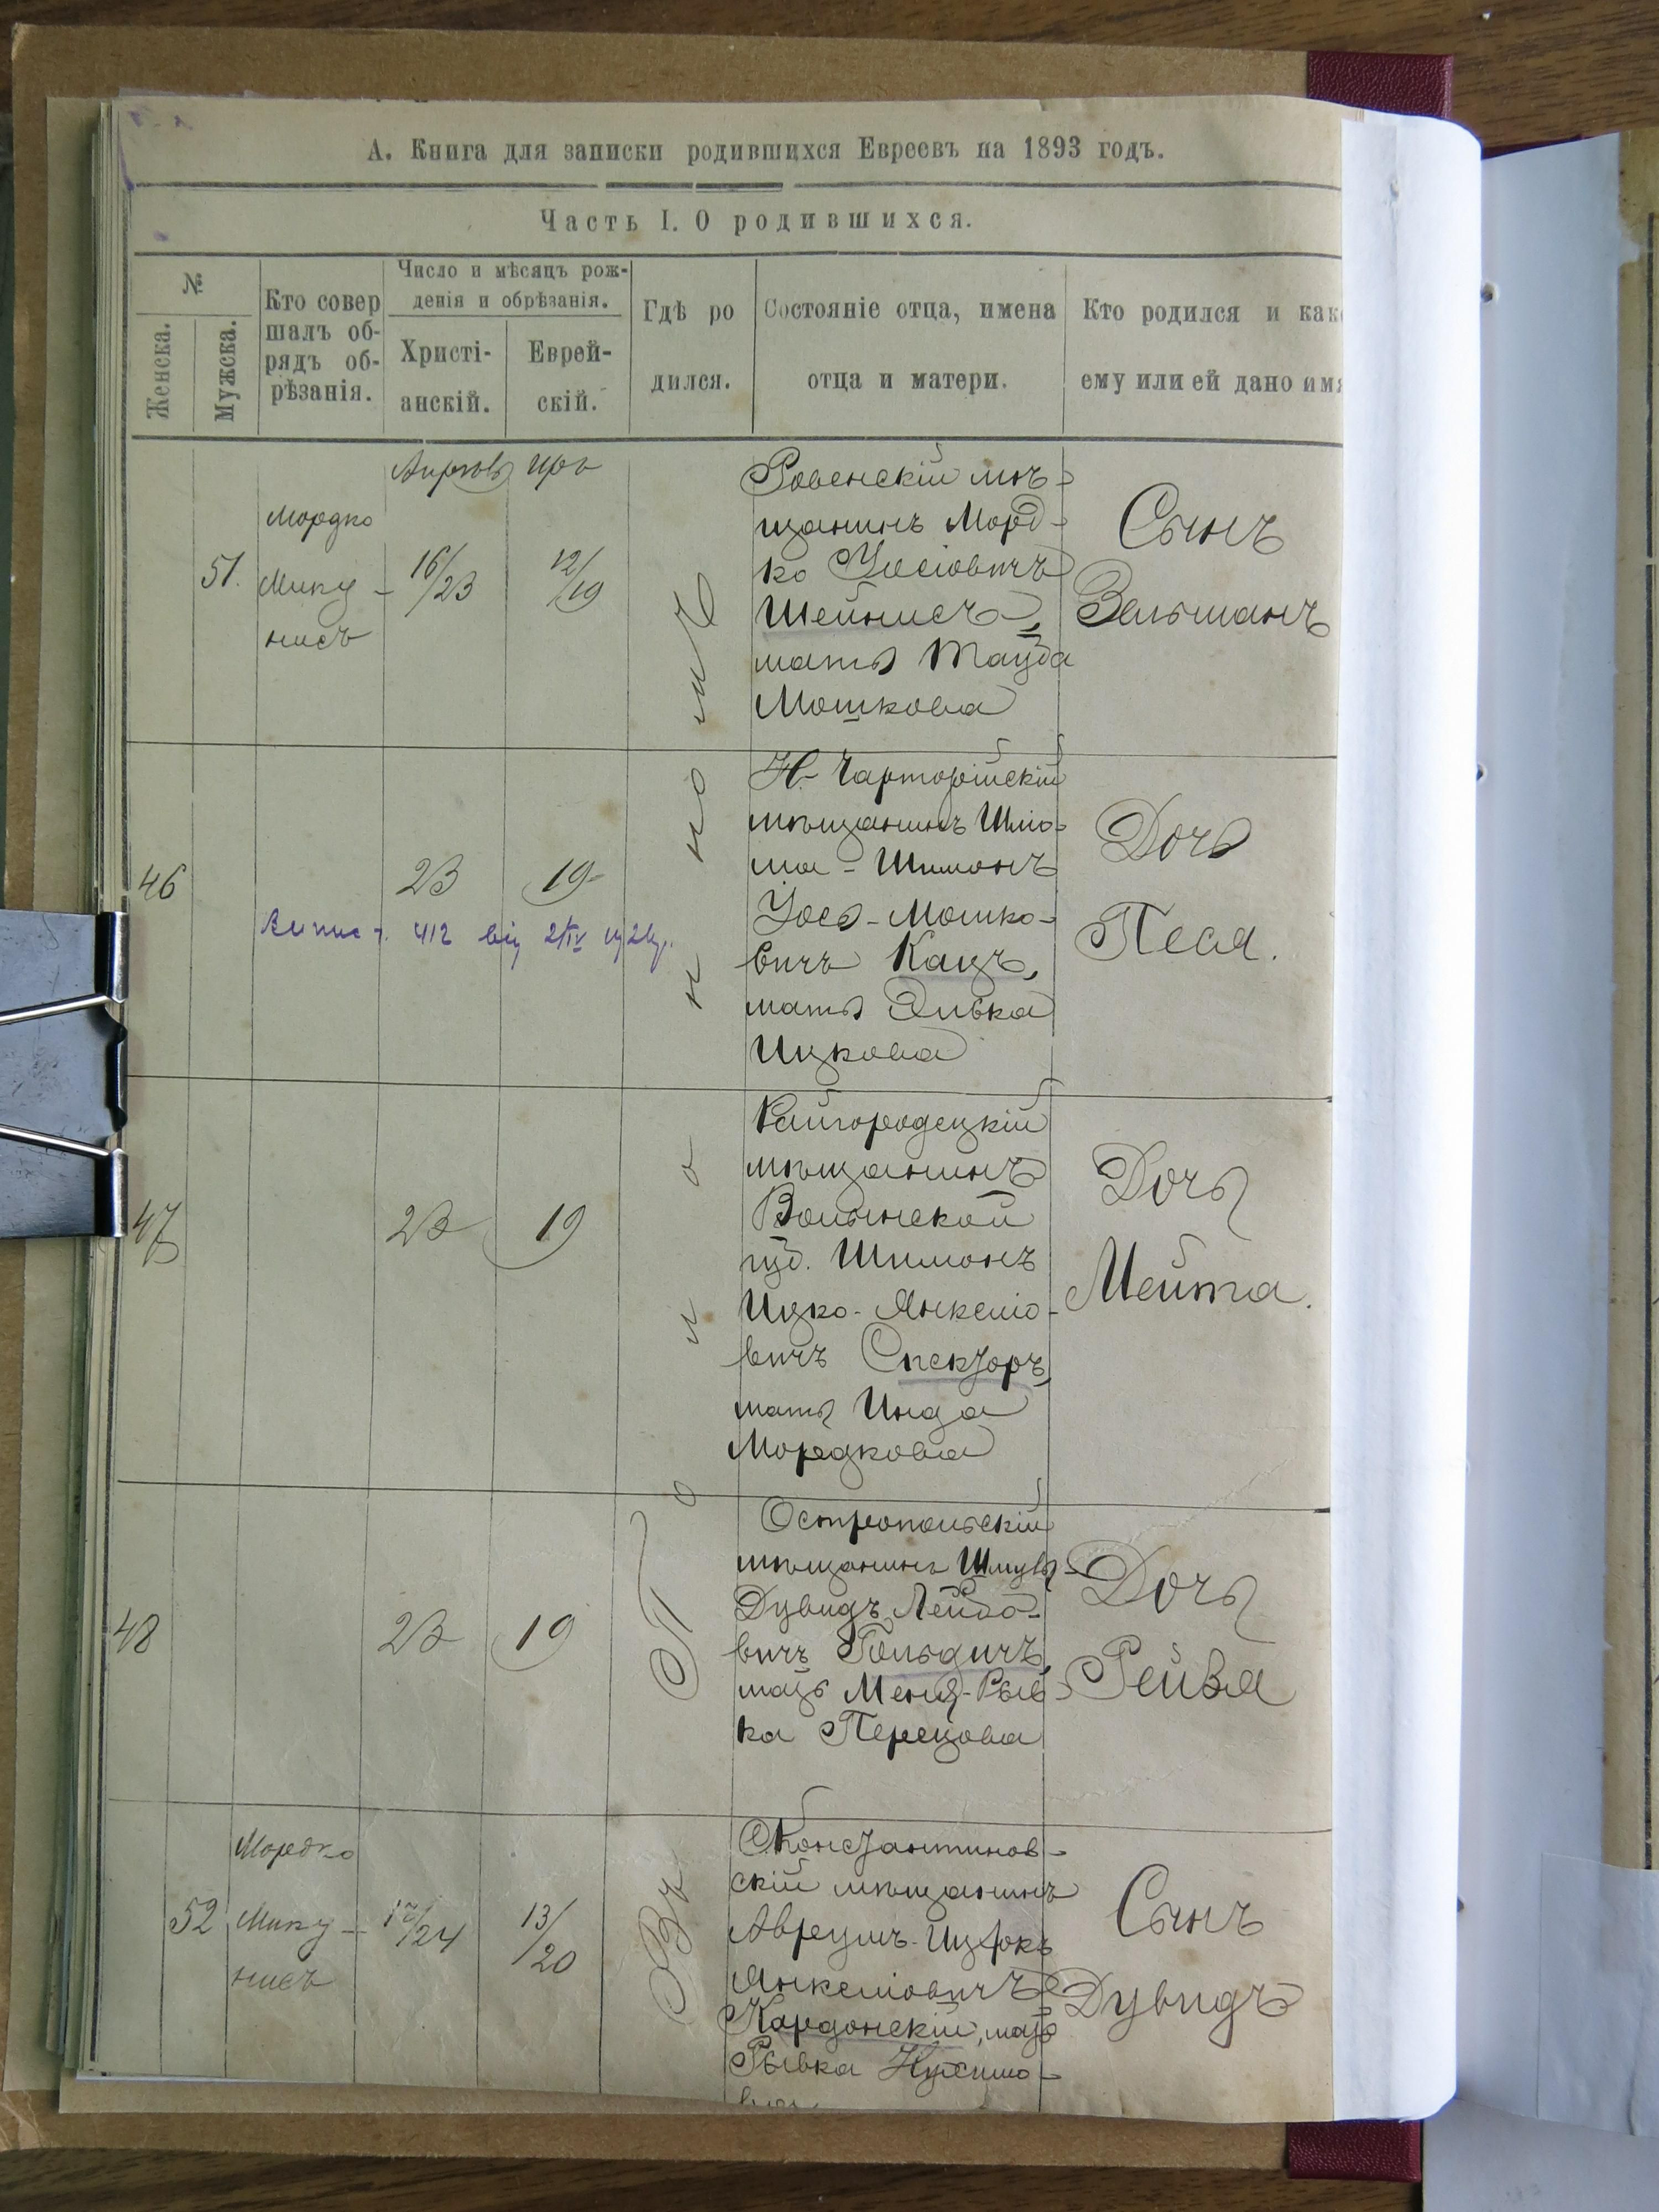 А. Книга для записки родившихся Евреевъ на 1893 годъ.
Часть I. О родившихся.
№
Женска.
Мужска.
Кто совер
шалъ об-
рядъ об-
рѣзанія.
Число и мѣсяцъ рож-
денія и обрѣзанія.
Христі-
анскій.
Еврей-
скій.
Гдѣ ро
дился.
Состояніе отца, имена
отца и матери.
Кто родился и как
ему или ей дано имя
Въ
51.
Мордко
Мипу-
нисъ
16/23
12/19
Ровенскій мѣ-
щанинъ Морд-
ко Іосіовичъ
Шейнисъ,
мать Тауба
Мошкова
Сынъ
Зельманъ
46
23
19
Н-Чарторійскій
мѣщанинъ Шлио-
ма-Шимонъ
Іось-Мошко-
вичъ Кацъ,
мать Элька
Ицкова
Дочь
Песя.
47
23
19
Райгородецкій
мѣщанинъ
Волынской
губ. Шимонъ
Ицко-Янкелио-
вичъ Спекторъ,
мать Инда
Мордкова
Дочь
Мейта.
48
23
19
Остропольскій
мѣщанинъ Шмуль
Дувидъ Лейбо-
вичъ Гольдичъ,
мать Меня-Рыв-
ка Перецова
Дочь
Рейзя
52
Мордко
Мипу-
нисъ
17/24
13/20
Константинов-
скій мѣщанинъ
Аврумъ-Ицхокъ
Янкелиовичъ
Кардонскій, мать
Рывка
Сынъ
Дувидъ